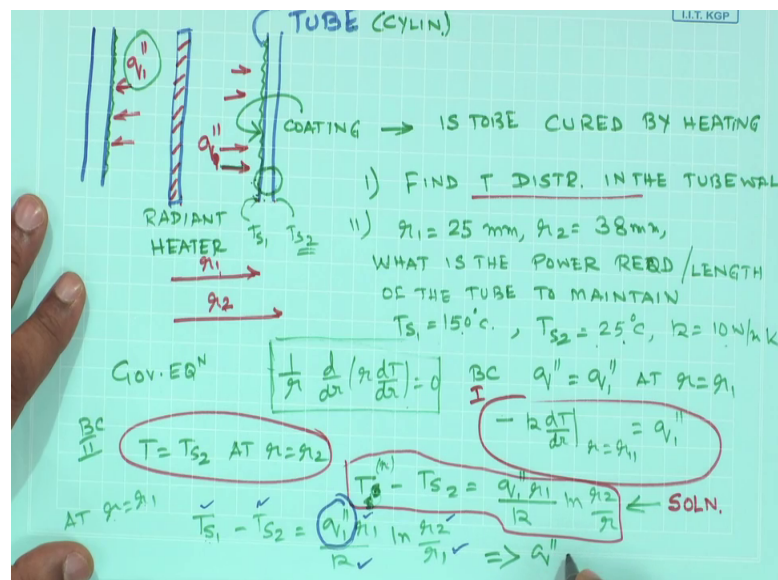 I.I.T. KGP
TUBE (CYLIN.)
q₁"
q₁"
COATING → IS TO BE CURED BY HEATING
I) FIND T DISTR. IN THE TUBEWAL
RADIANT HEATER
Ts₁ Ts₂
II) r₁ = 25 mm, r₂ = 38mm,
r₁
WHAT IS THE POWER REQD/LENGTH
r₂
OF THE TUBE TO MAINTAIN
Ts₁ = 150°C. , Ts₂ = 25°C, k = 10 W/m K
GOV. EQᴺ 1/r d/dr (r dT/dr) = 0
BC I q" = q₁" AT r = r₁
- k dT/dr | r = r₁ = q₁"
BC II T = Ts₂ AT r = r₂
T(r) - Ts₂ = q₁" r₁/k ln r₂/r ← SOLN.
AT r = r₁
Ts₁ - Ts₂ = q₁" r₁/k ln r₂/r₁ => q"